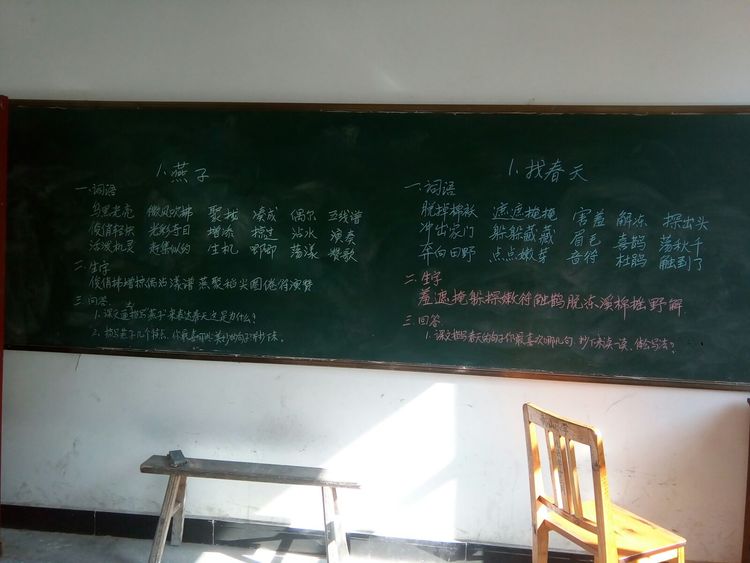 1.燕子
一.词语
乌黑光亮 微风吹拂 聚拢 凑成 偶尔 五线谱
俊俏轻快 光彩夺目 增添 掠过 沾水 演奏
活泼机灵 赶集似的 生机 唧唧 荡漾 赞歌
二.生字
俊俏拂增掠偶沾漾谱燕聚稻尖圈倦符演赞
三.问答
1.课文通过写燕子来表达春天这是为什么?
2.描写燕子几个特点,你最喜
1.找春天
一.词语
脱掉棉袄 遮遮掩掩 害羞 解冻 探出头
冲出家门 躲躲藏藏 眉毛 喜鹊 荡秋千
奔向田野 点点嫩芽 音符 杜鹃 触到了
二.生字
羞遮掩躲探嫩符触鹊脱冻溪棉摇野解
三.回答
1.课文描写春天的句子你最喜欢哪几句,抄下来读一读,体会写法?